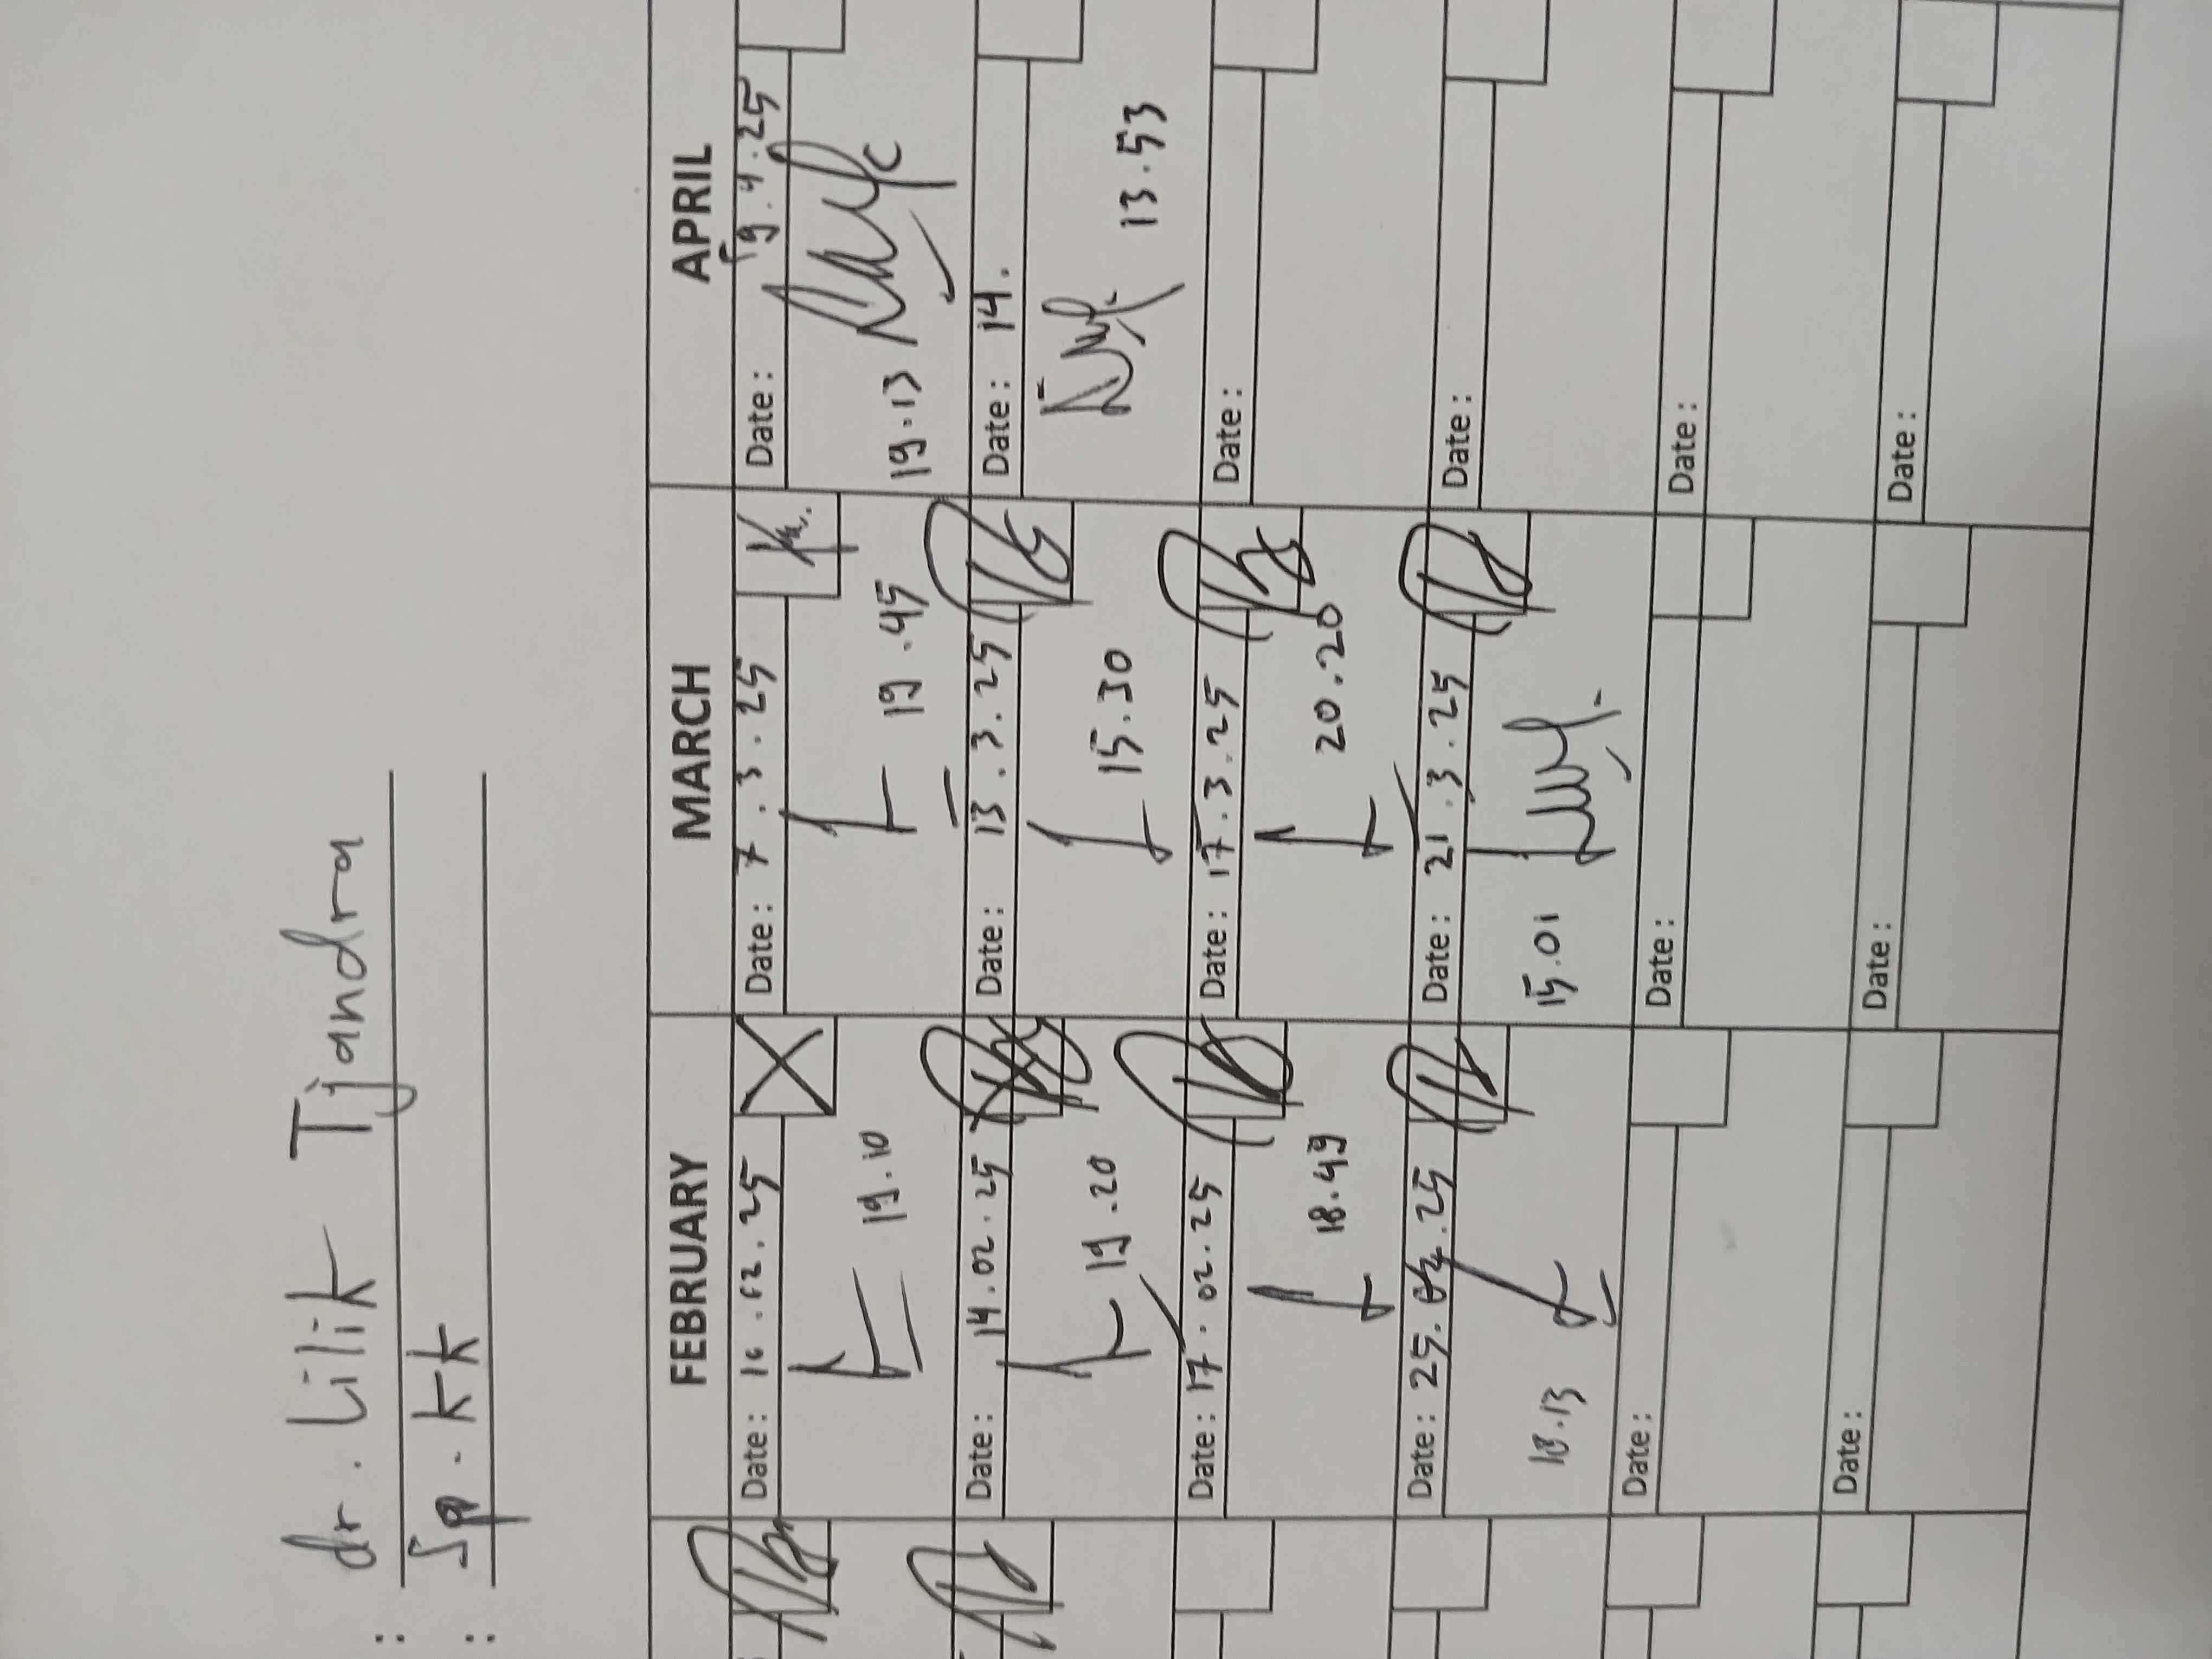 : dr. Lilik Tjandra
: Sp. KK
FEBRUARY MARCH APRIL
Date: 10.02.25 Date: 7.3.25 Date: 9.4.25
19.10 19.45 19.13
Date: 14.02.25 Date: 13.3.25 Date: 14.
19.20 15.30 13.53
Date: 17.02.25 Date: 17.3.25 Date:
18.49 20.20
Date: 25.02.25 Date: 21.3.25 Date:
18.13 15.01
Date: Date: Date:
Date: Date: Date: